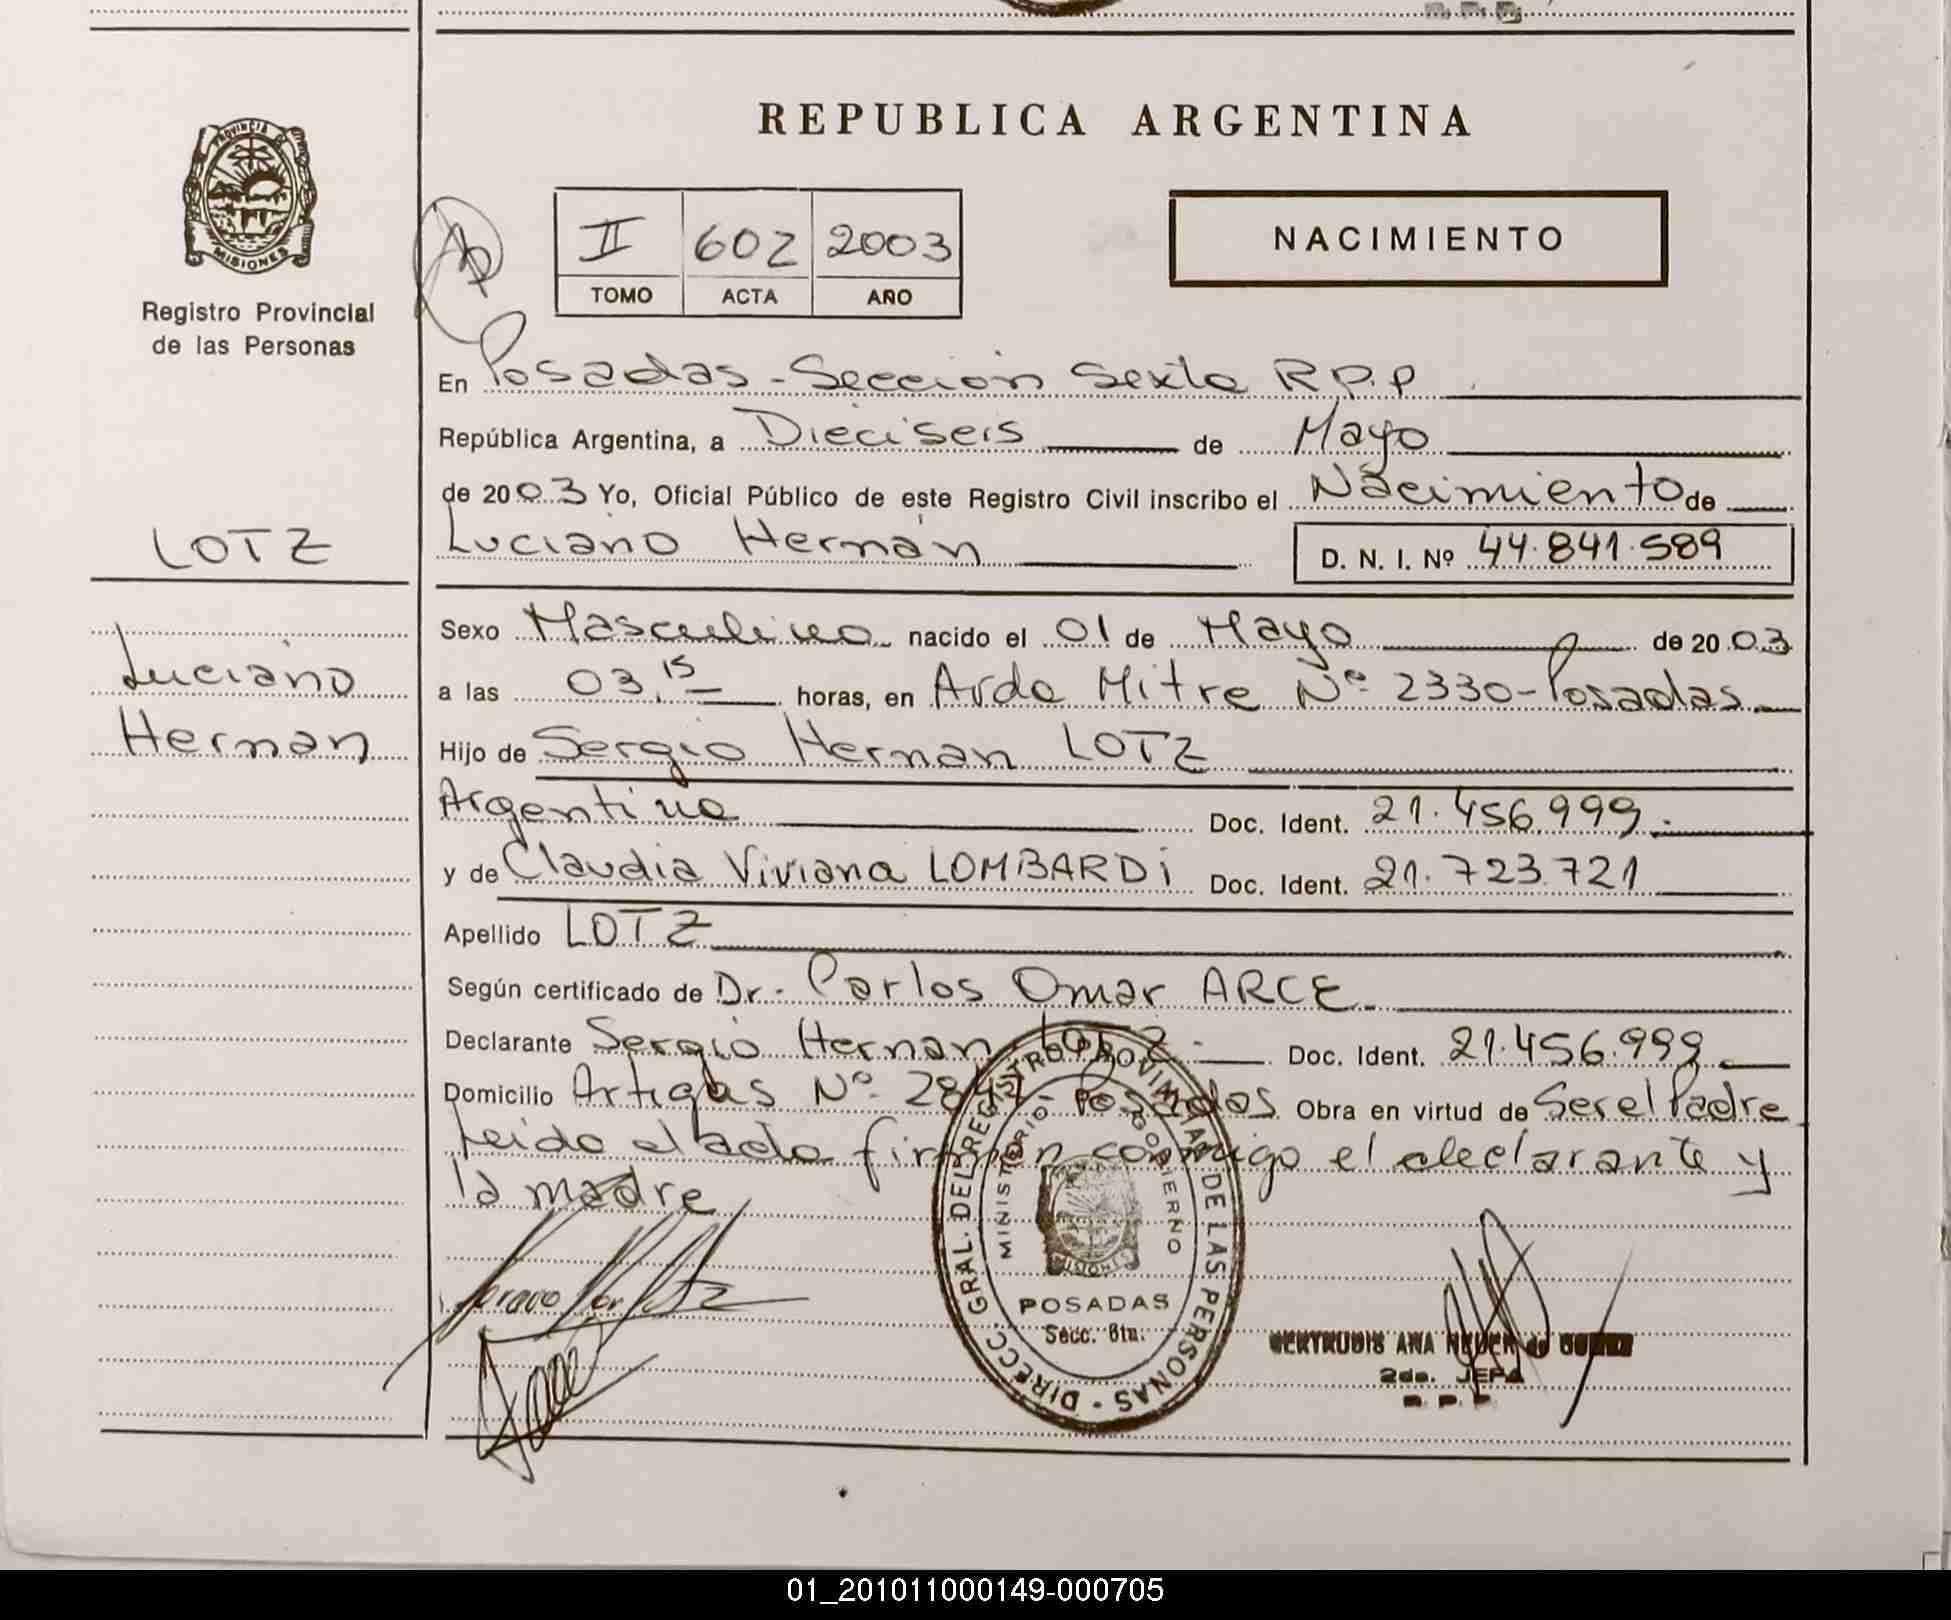 R. P. P.
REPUBLICA ARGENTINA
PROVINCIA DE
MISIONES
Registro Provincial
de las Personas
II 602 2003
TOMO ACTA AÑO
NACIMIENTO
En Posadas - Sección Sexta R.P.P
República Argentina, a Dieciseis de Mayo
de 2003 Yo, Oficial Público de este Registro Civil inscribo el Nacimiento de
LOTZ
Luciano Hernán D. N. I. Nº 44.841.589
Sexo Masculino nacido el 01 de Mayo de 2003
Luciano
Hernan
a las 03,15 horas, en Avda Mitre Nº 2330 - Posadas
Hijo de Sergio Hernan LOTZ
Argentina Doc. Ident. 21.456.999.-
y de Claudia Viviana LOMBARDi Doc. Ident. 21.723.721
Apellido LOTZ
Según certificado de Dr. Carlos Omar ARCE.-
Declarante Sergio Hernan Lotz - Doc. Ident. 21.456.999.
Domicilio Artigas Nº Posadas Obra en virtud de Ser el Padre
Leido el acta firman conmigo el declarante y
la madre
DIRECC. GRAL. DEL REGISTRO PROVINCIAL DE LAS PERSONAS
MINISTERIO GOBIERNO
MISIONES
POSADAS
Secc. 6ta.
GERTRUDIS ANA de
2da. JEFA
R. P. P.
01_201011000149-000705